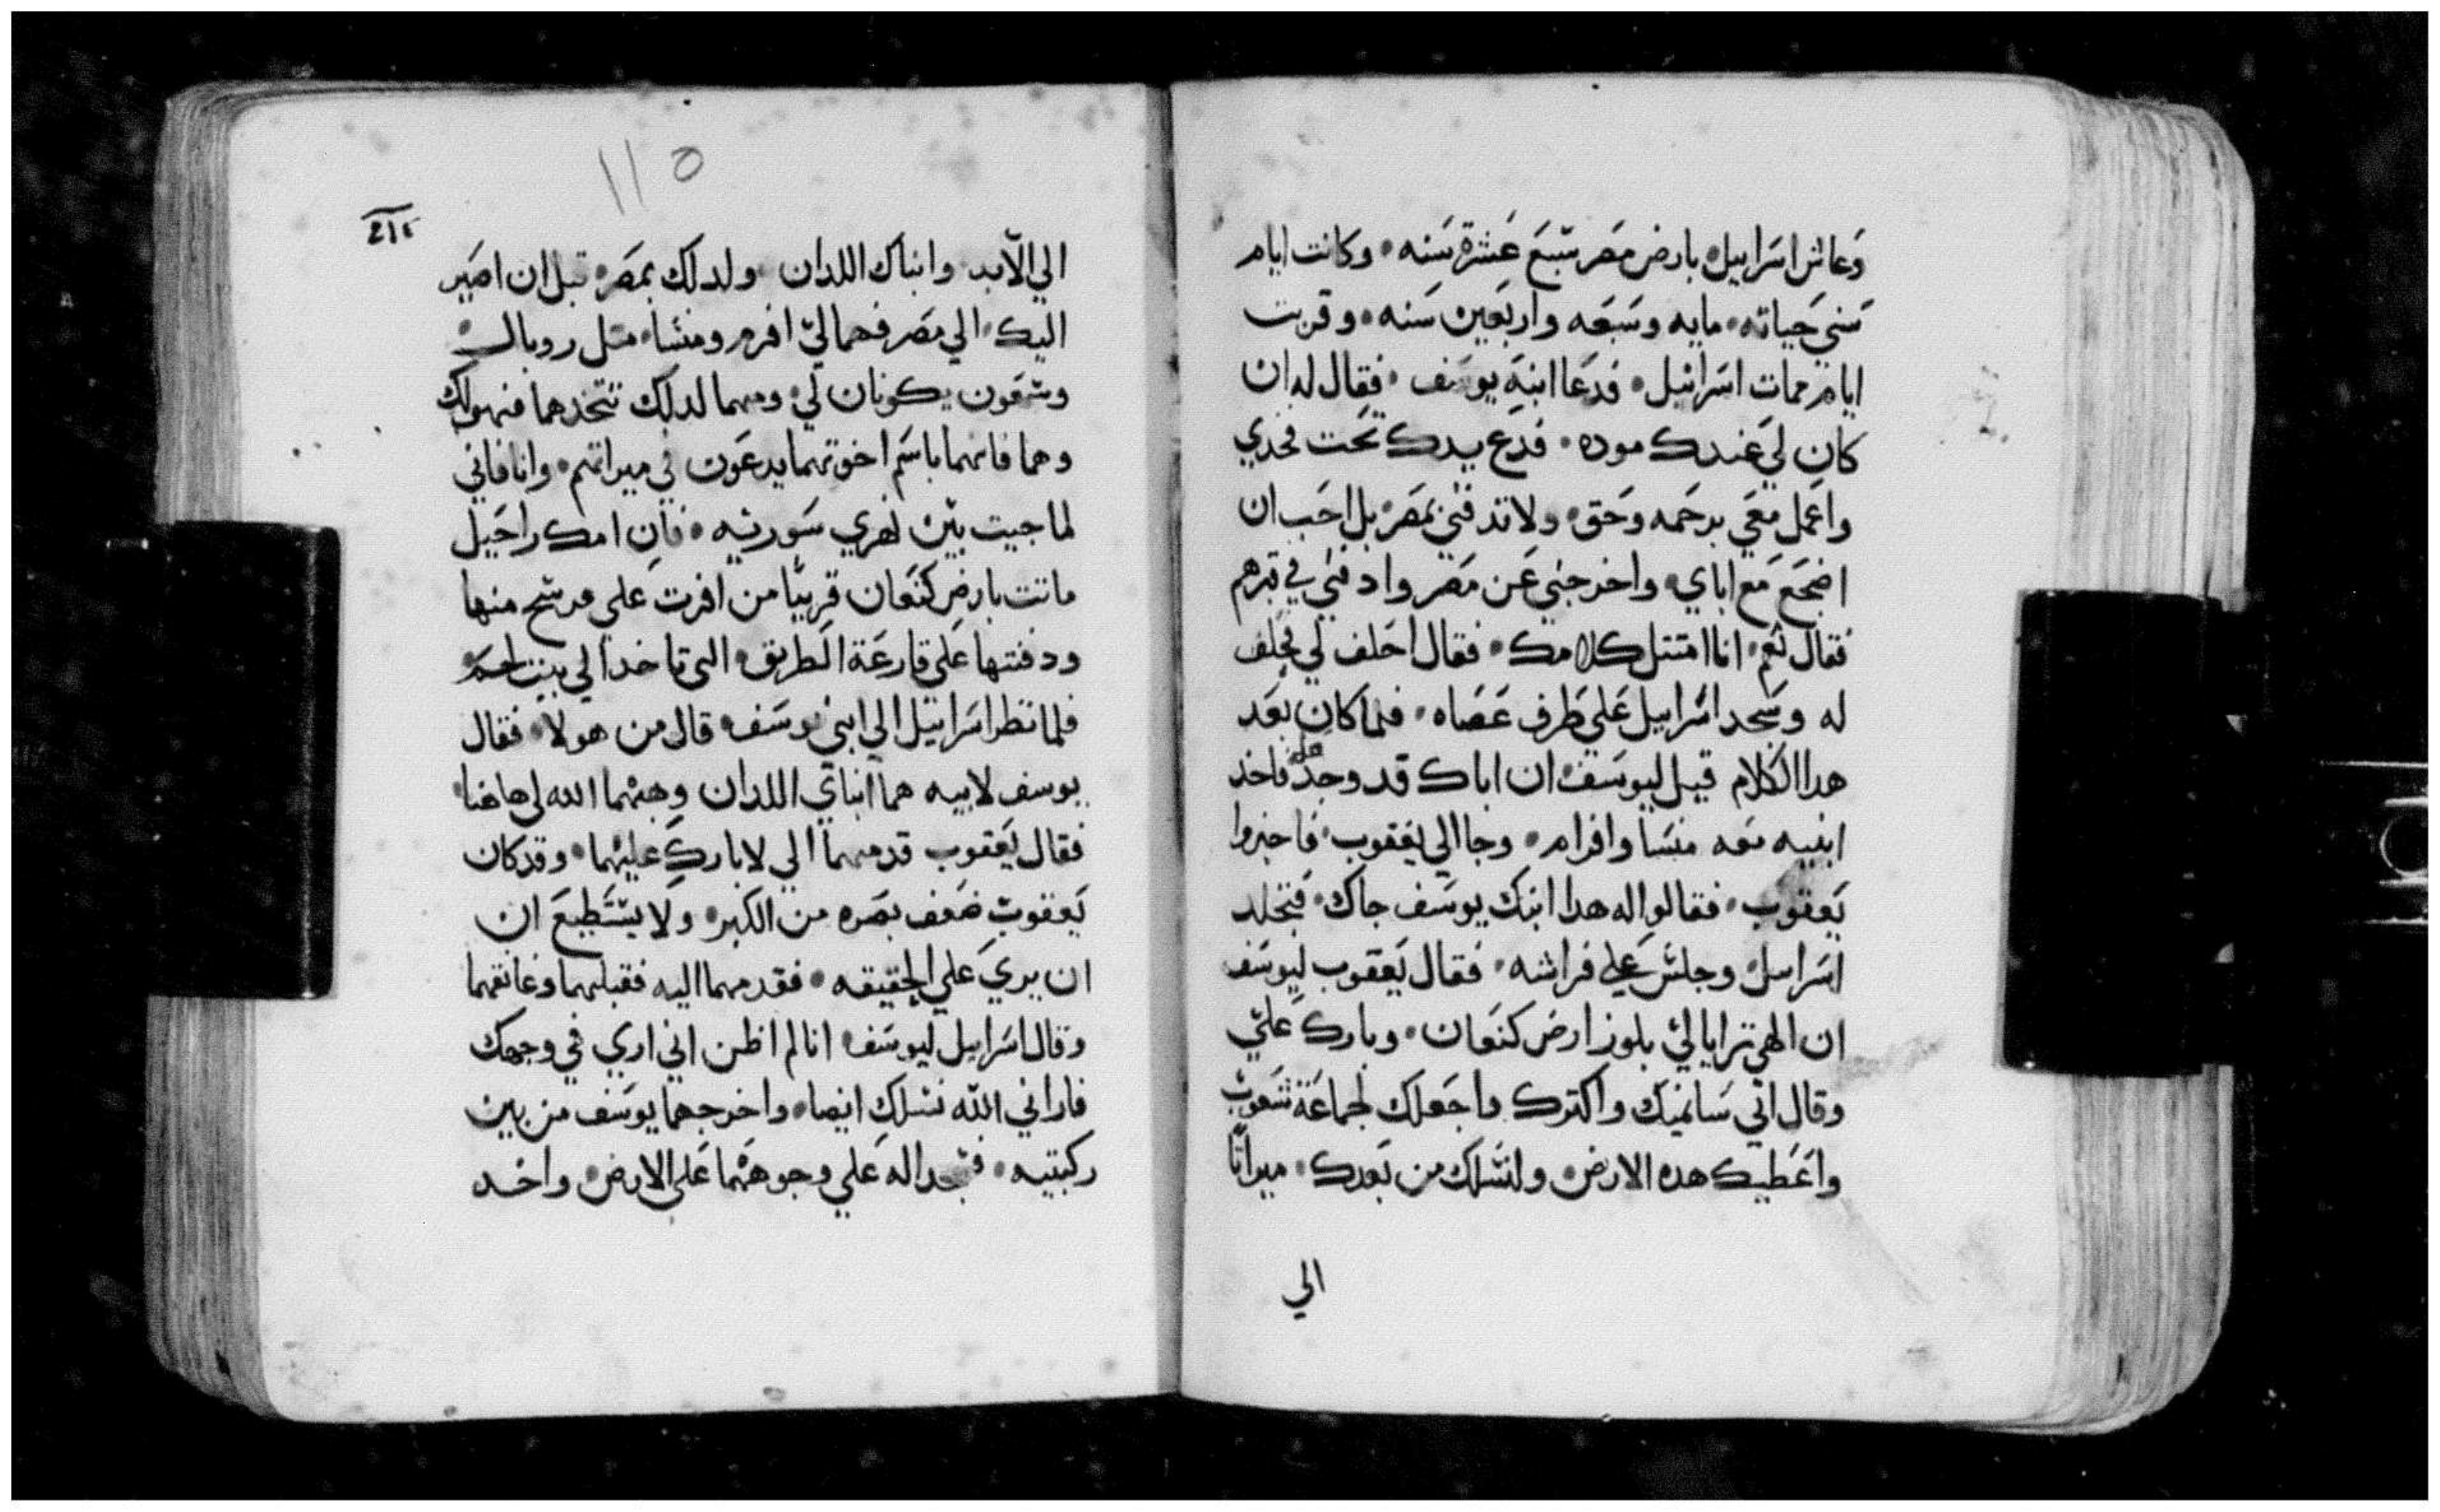 وعاش اسراييل بارض مصر سبع عشرة سنه • وكانت ايام
سني حياته • مايه وسبعه واربعين سنه • وقربت
ايام ممات اسرائيل • فدعا ابنه يوسف • فقال له ان
كان لي عندك موده • فدع يدك تحت فخدي
واعمل معي برحمه وحق • ولا تدفني بمصر • بل احب ان
اضجع مع اباي • واخرجني عن مصر وادفني في قبرهم
فقال نعم • انا امتتل كلامك • فقال احلف لي فحلف
له وسجد اسراييل علي طرف عصاه • فلما كان بعد
هدا الكلام قيل ليوسف ان اباك قد وجد فاخد
ابنيه معه منسا وافرام • وجا الي يعقوب • فاخبروا
يعقوب • فقالوا له هدا ابنك يوسف جاك • فتجلد
اسراييل • وجلس علي فراشه • فقال يعقوب ليوسف
ان الهي ترايا لي بلوز ارض كنعان • وبارك علي
وقال اني سانميك واكترك واجعلك لجماعة شعوب
واعطيك هده الارض • ولنسلك من بعدك • ميراتا
الي
115
الي الابد • وابناك اللدان ولدا لك بمصر • قبل ان اصير
اليك • الي مصر فهما لي افرم ومنسا • متل روبال
وشمعون يكونان لي • ومهما لدلك تتخدهما فهو لك
وهما فانهما باسم اخوتهما يدعون في ميراتهم • وانا فاني
لما جيت بين نهري سورنيه • فان امك راحيل
ماتت بارض كنعان قريبا من افرت علي فرسخ منها
ودفنتها علي قارعة الطريق • التي تاخد الي بيت لحم
فلما نظر اسراييل الي ابني يوسف • قال من هولا • فقال
يوسف لابيه هما ابناي اللدان وهبهما الله لي هاهنا
فقال يعقوب قدمهما الي لابارك عليهما • وقد كان
يعقوب ضعف بصره من الكبر • ولا يستطيع ان
ان يري علي الحقيقه • فقدمهما اليه فقبلهما وعانقهما
وقال اسراييل ليوسف • انا لم اظن اني اري في وجهك
فاراني الله نسلك ايضا • واخرجهما يوسف من بين
ركبتيه • فسجدا له علي وجوههما علي الارض • واخد